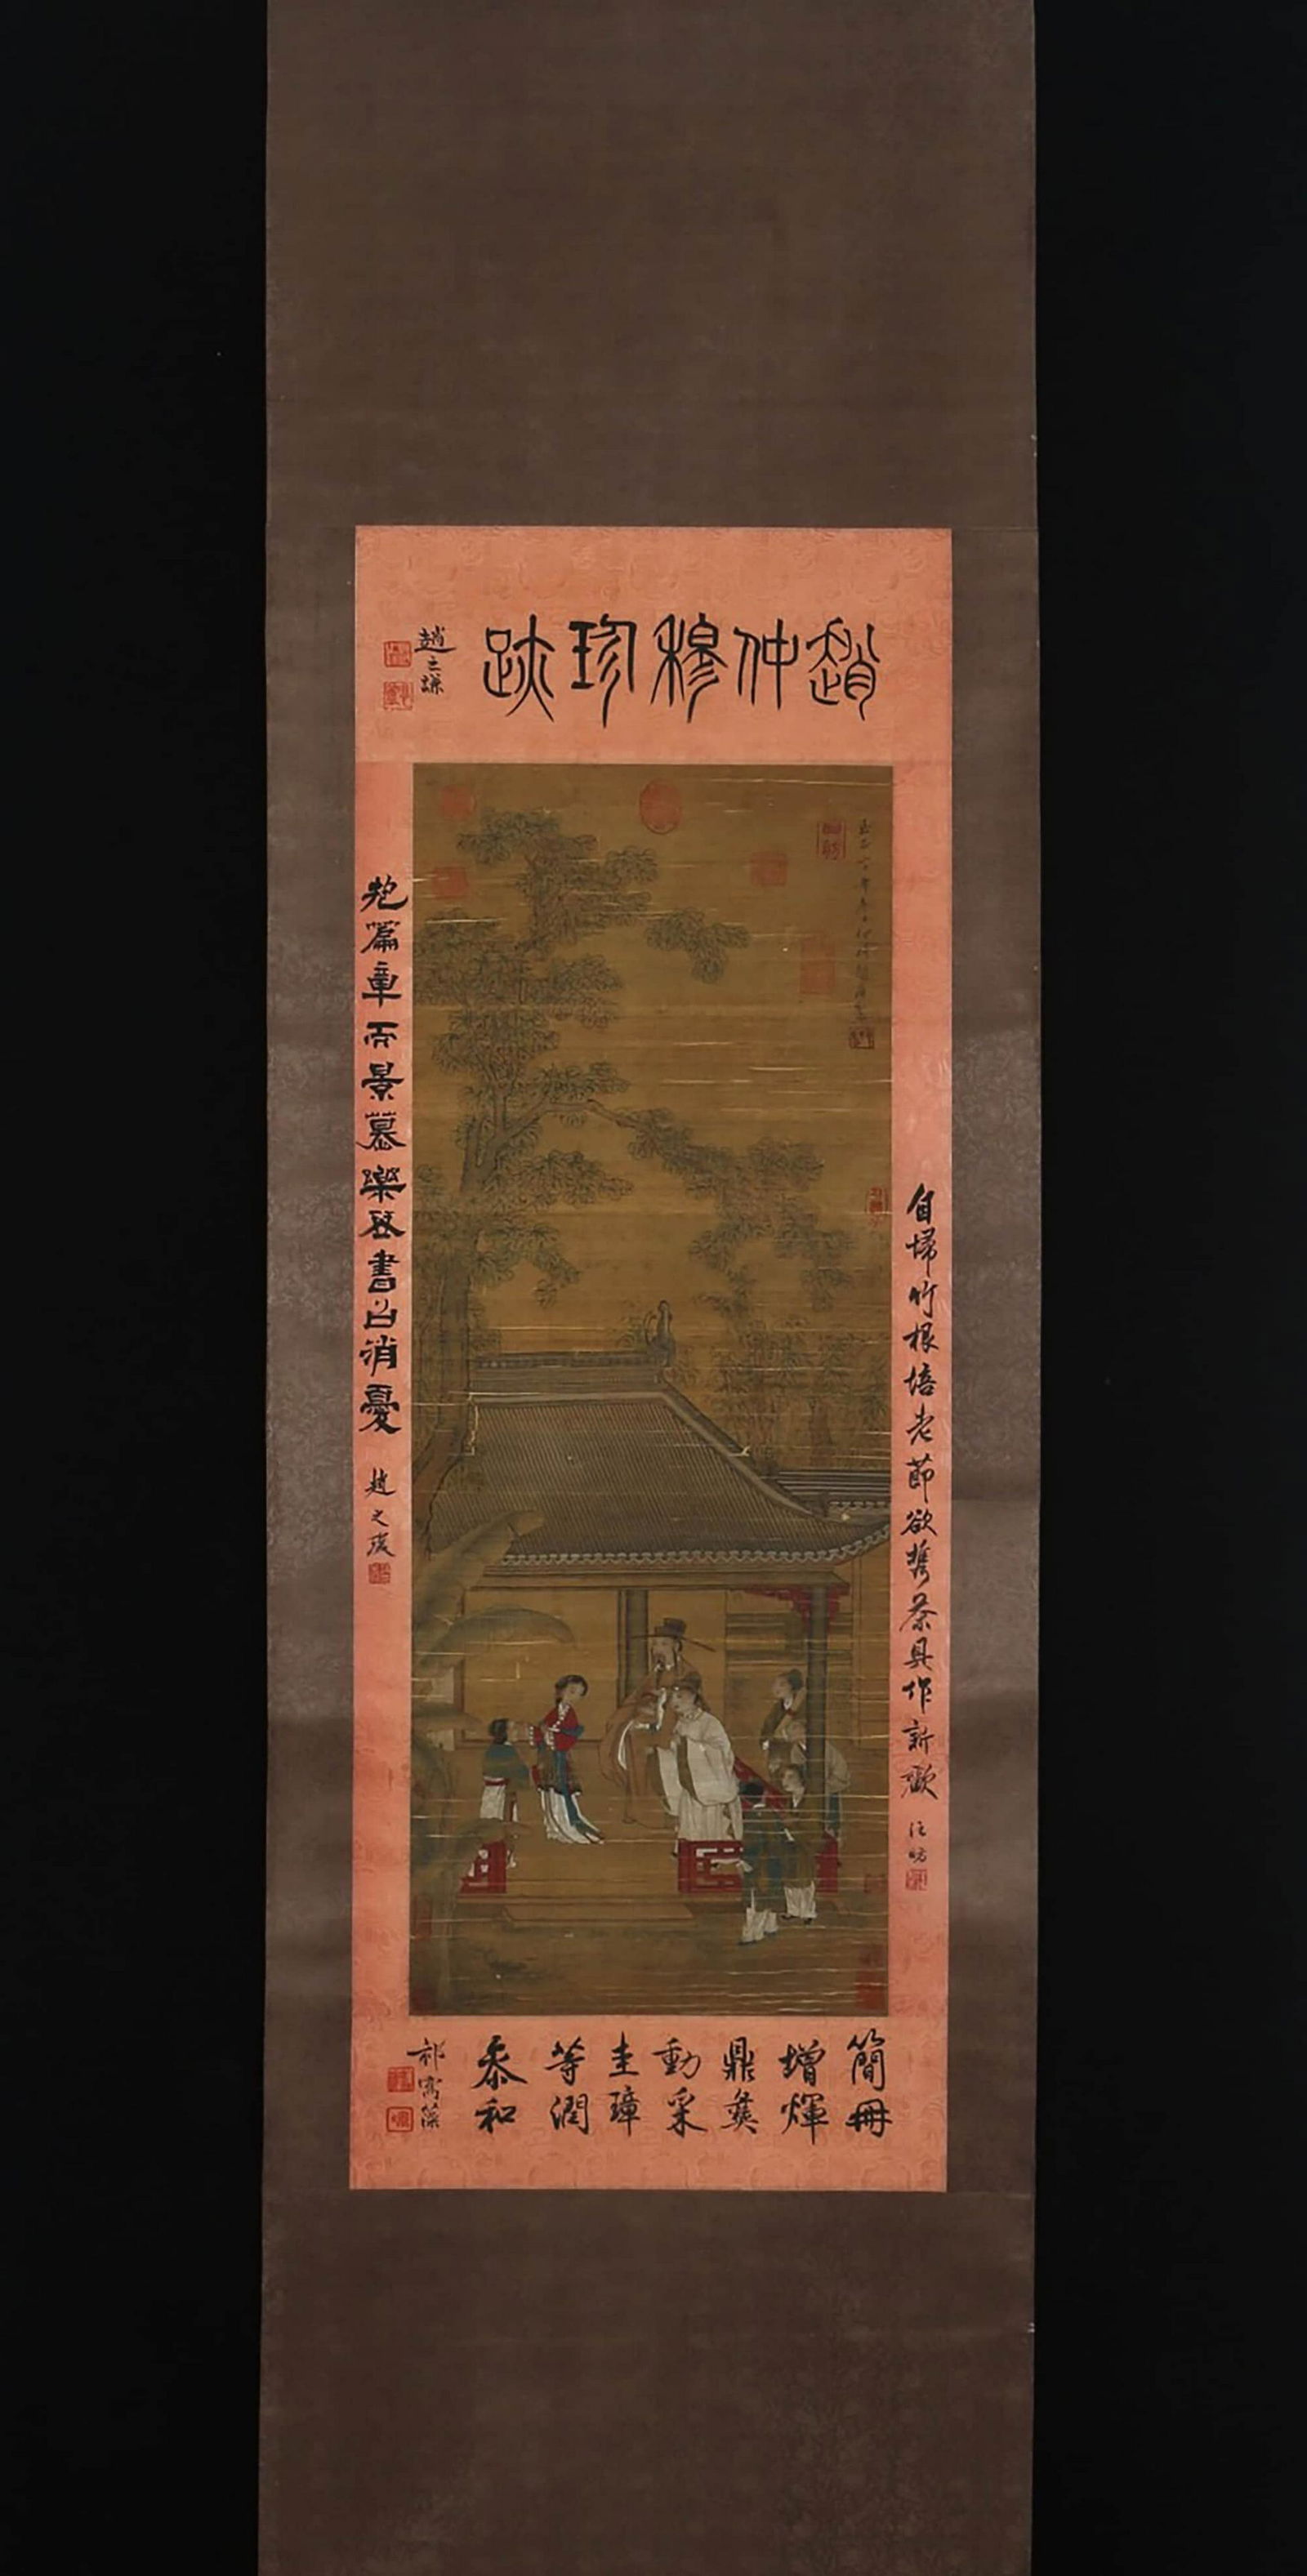 趙仲穆珍跡
趙之謙
自埽竹根培老節欲攜茶具作新歡
汪昉
抱篇章而景慕樂琴書以消憂
趙之琛
簡冊
增輝
鼎彝
動采
圭璋
等潤
泰和
祁寯藻